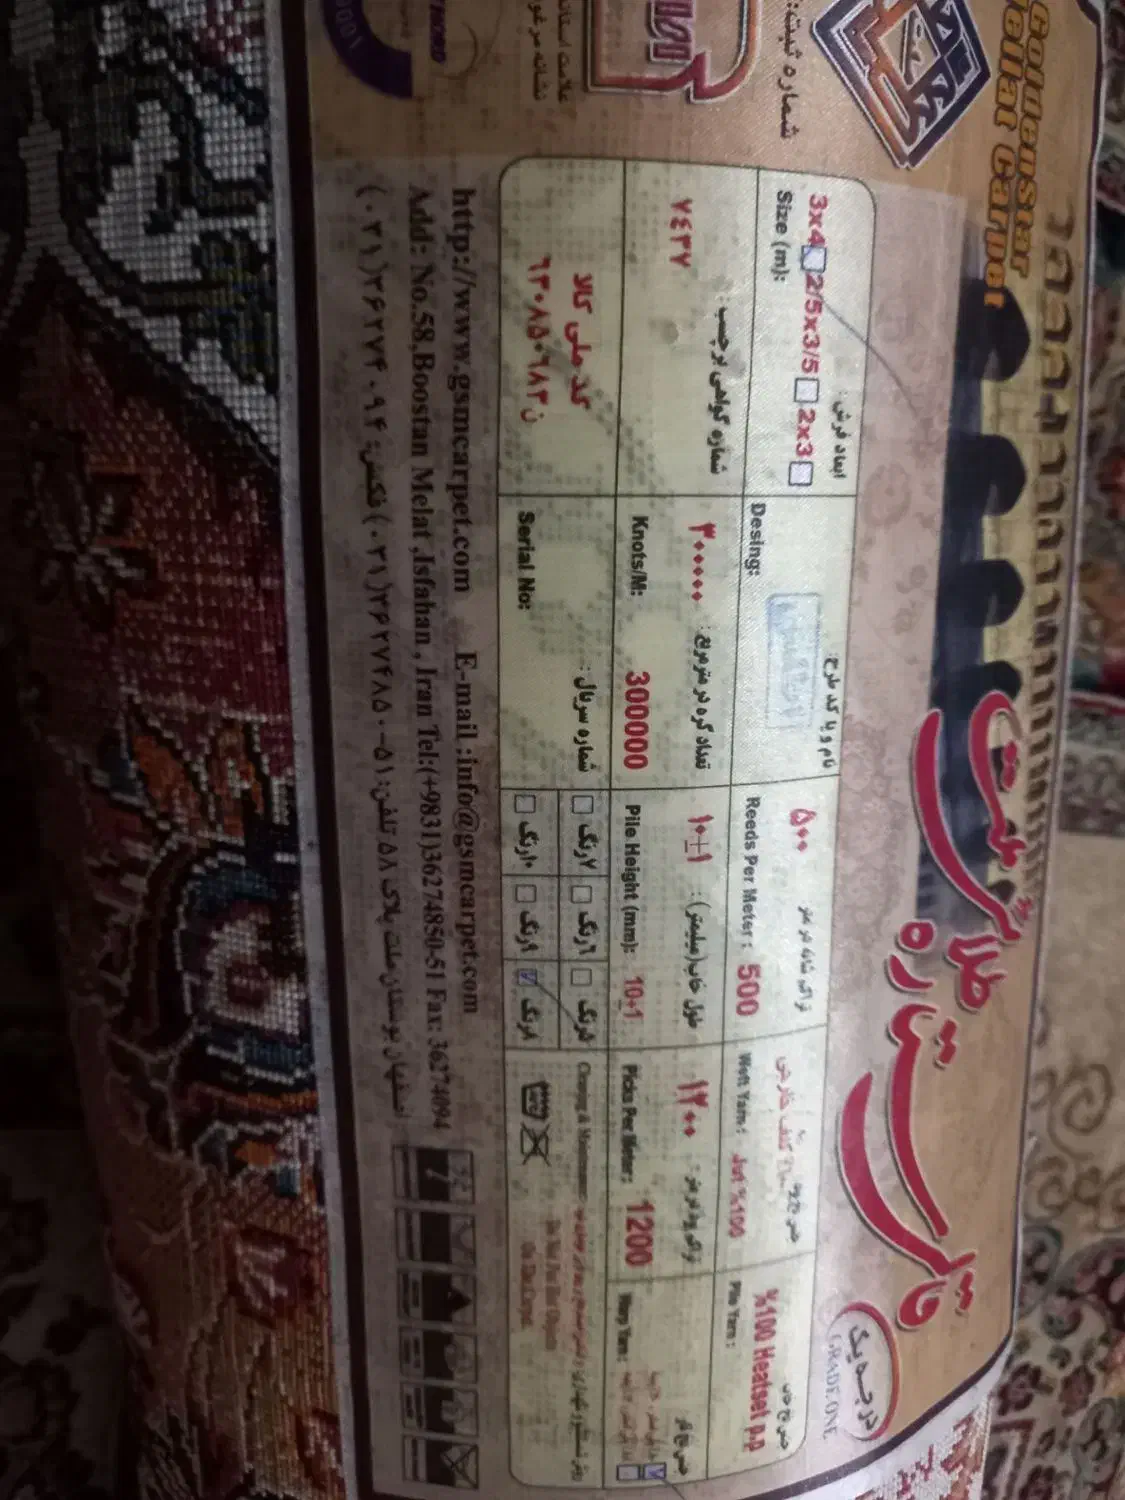 Goldensar
Mellat Carpet
طلائی ملت
درجه یک
GRADE ONE
شماره ثبت:
ابعاد فرش:
3x4 2/5x3/5 2x3
Size (m):
نام و یا کد طرح:
Desing:
تراکم شانه در متر
۵۰۰
Reeds Per Meter: 500
Weft Yarn: Jut %100
جنس نخ خاب
%100 Heatset p.p
Pile Yarn:
شماره گواهی برچسب:
۷٤۳۷
تعداد گره در مترمربع:
۳۰۰۰۰۰
Knots/M: 300000
طول خاب(میلیمتر):
۱۰±۱
Pile Height (mm): 10+1
تراکم پود در متر:
۱۲۰۰
Picks Per Meter: 1200
جنس نخ تار
Warp Yarn:
کد ملی کالا
شماره سریال:
Serial No:
۷رنگ ۶رنگ ۵رنگ
۱۰رنگ ۹رنگ ۸رنگ
http://www.gsmcarpet.com E-mail :info@gsmcarpet.com
Add: No.58,Boostan Melat ,Isfahan , Iran Tel:(+9831)36274850-51 Fax: 36274094
اصفهان بوستان ملت پلاک ۵۸ تلفن: ۵۱-۳۶۲۷۴۸۵۰(۰۳۱) فکس: ۳۶۲۷۴۰۹۴(۰۳۱)